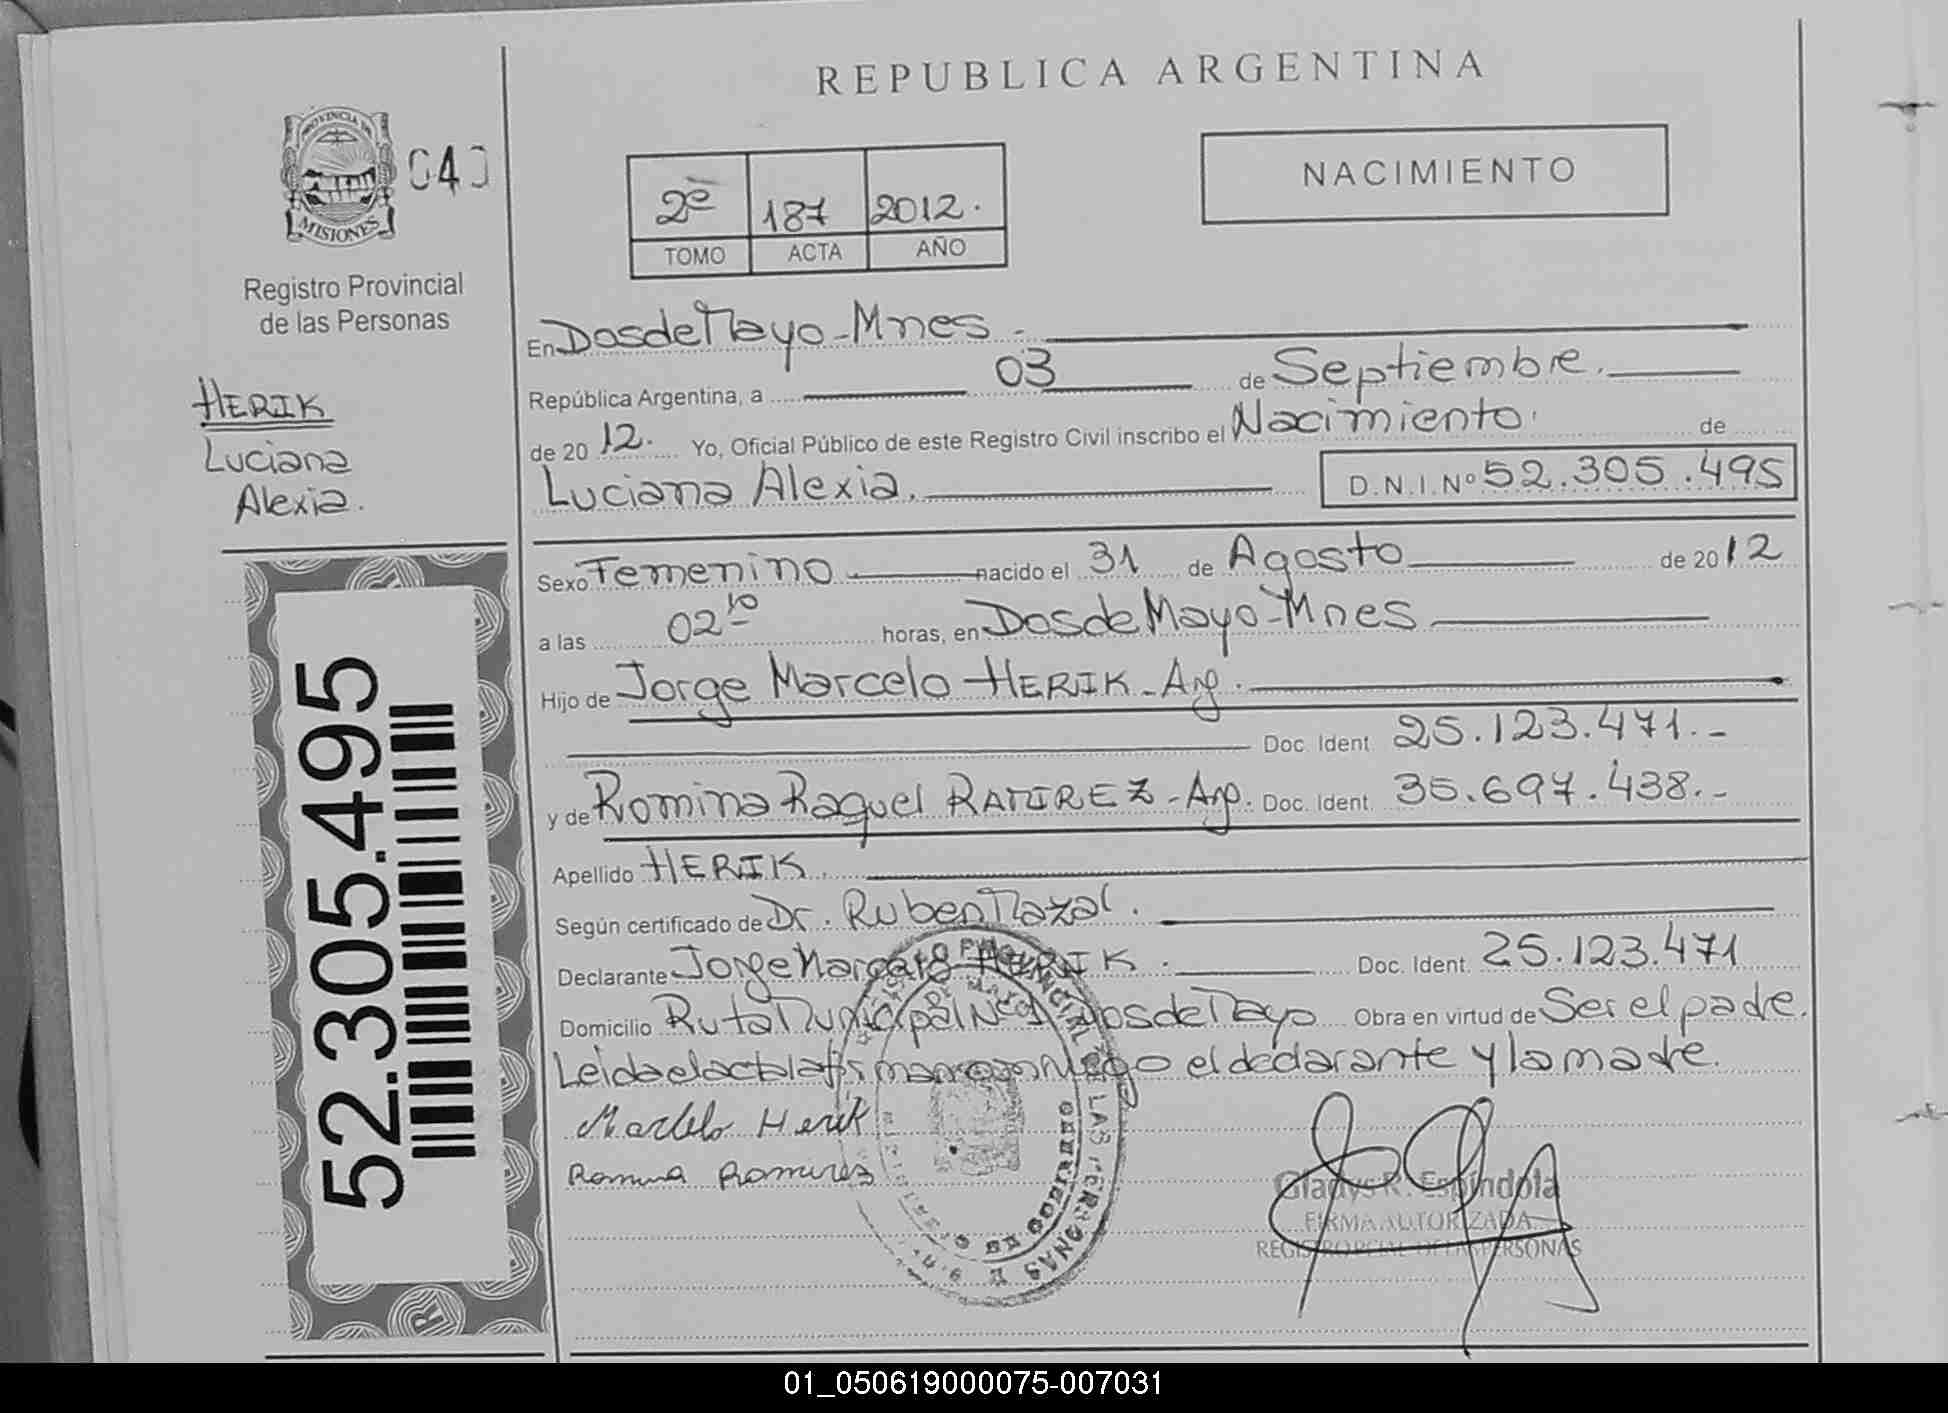 REPUBLICA ARGENTINA
PROVINCIA DE
MISIONES
040
Registro Provincial
de las Personas
HERIK
Luciana
Alexia.
52.305.495
2º 187 2012.
TOMO ACTA AÑO
NACIMIENTO
En Dos de Mayo - Mnes -
República Argentina, a 03 de Septiembre.
de 2012. Yo, Oficial Público de este Registro Civil inscribo el Nacimiento. de
Luciana Alexia. D.N.I.Nº 52.305.495
Sexo Femenino nacido el 31 de Agosto de 2012
a las 02 10 horas, en Dos de Mayo - Mnes
Hijo de Jorge Marcelo HERIK - Arg.
Doc. Ident. 25.123.471.-
y de Romina Raquel RAMIREZ - Arg. Doc. Ident. 35.697.438.-
Apellido HERIK.
Según certificado de Dr. Ruben Mazal.
Declarante Jorge Marcelo HERIK. Doc. Ident. 25.123.471
Domicilio Ruta Municipal Dos de Mayo Obra en virtud de Ser el padre.
Leida el acta la firman conmigo el declarante y la madre.
Marcelo Herik
Romina Ramirez
Gladys R. Espíndola
FIRMA AUTORIZADA
REGISTRO PCIAL. DE LAS PERSONAS
01_050619000075-007031